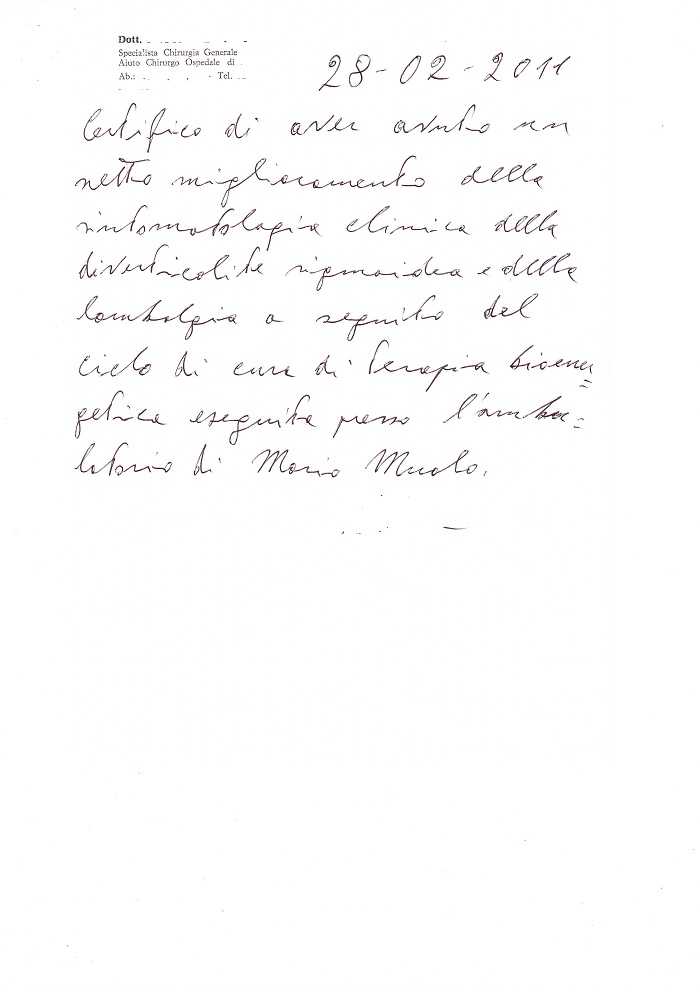 Dott.
Specialista Chirurgia Generale
Aiuto Chirurgo Ospedale di
Ab.: Tel.
28-02-2011
Certifico di aver avuto un
netto miglioramento della
sintomatologia clinica della
diverticolite sigmoidea e della
lombalgia a seguito del
ciclo di cure di Terapia bioener=
getica eseguita presso l'ambu=
latorio di Mario Muolo.